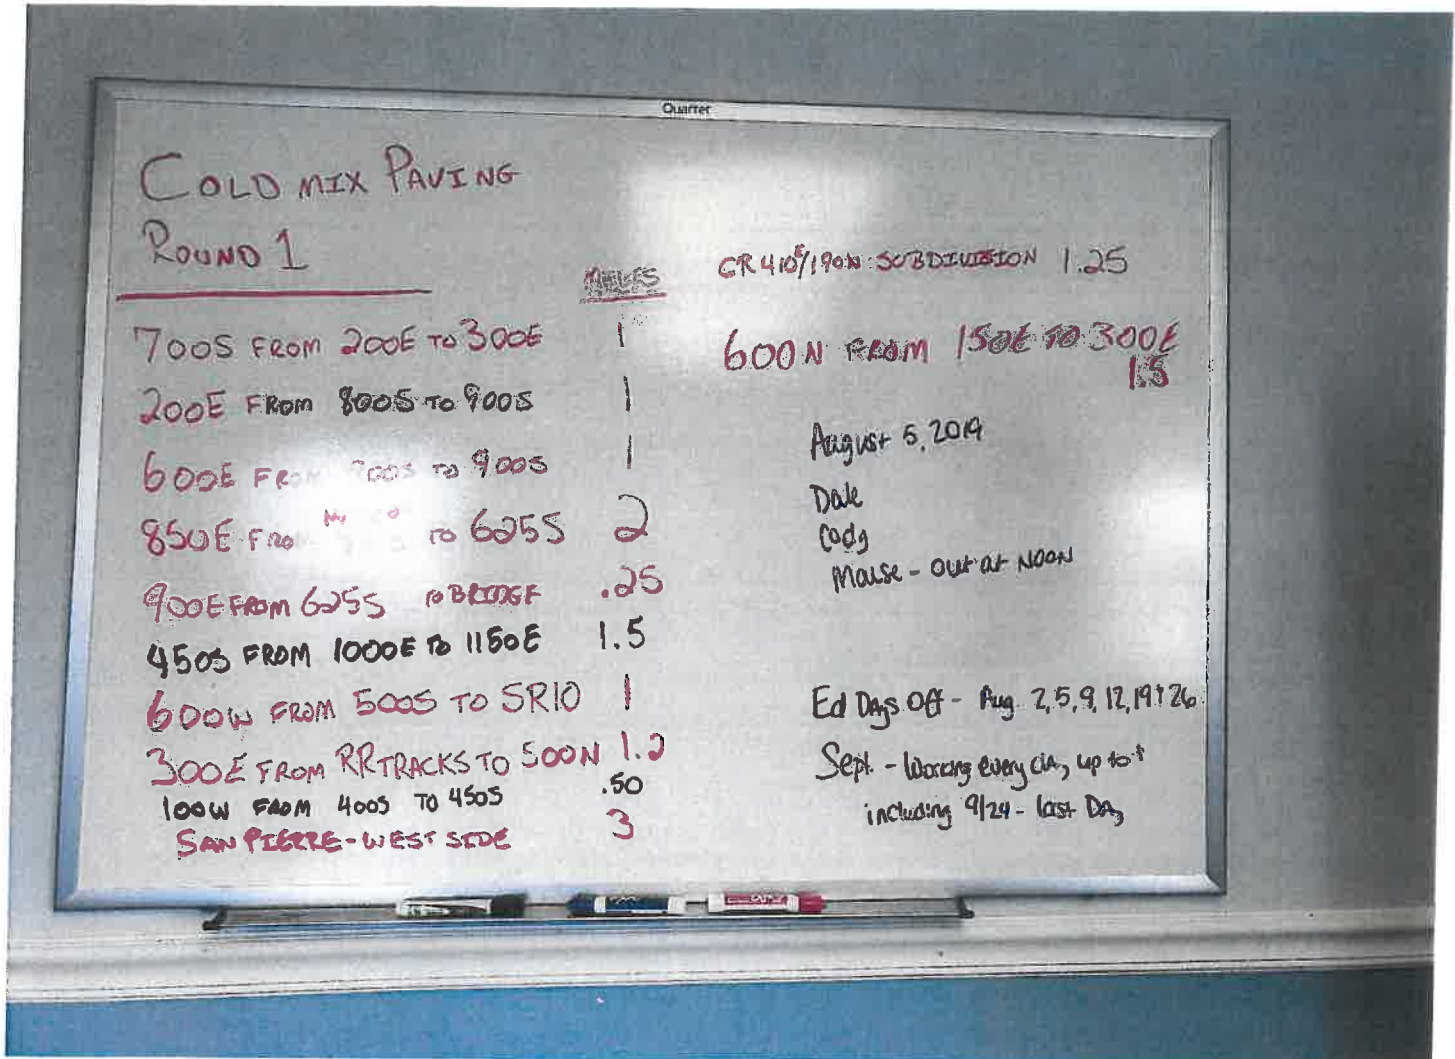 Quartet
COLD MIX PAVING
ROUND 1
MILES
700S FROM 200E TO 300E 1
200E FROM 800S TO 900S 1
600E FROM TO 900S 1
850E FROM TO 625S 2
900E FROM 625S TO BRIDGE .25
450S FROM 1000E TO 1150E 1.5
600W FROM 500S TO SR10 1
300E FROM RR TRACKS TO 500N 1.2
100W FROM 400S TO 450S .50
SAN PIERRE-WEST SIDE 3
CR 410E/190N SUBDIVISION 1.25
600N FROM 150E TO 300E
1.5
August 5, 2019
Dale
Cody
Mouse - out at NOON
Ed Days Off - Aug. 2, 5, 9, 12, 19 + 26
Sept. - Working every day up to +
including 9/24 - last Day